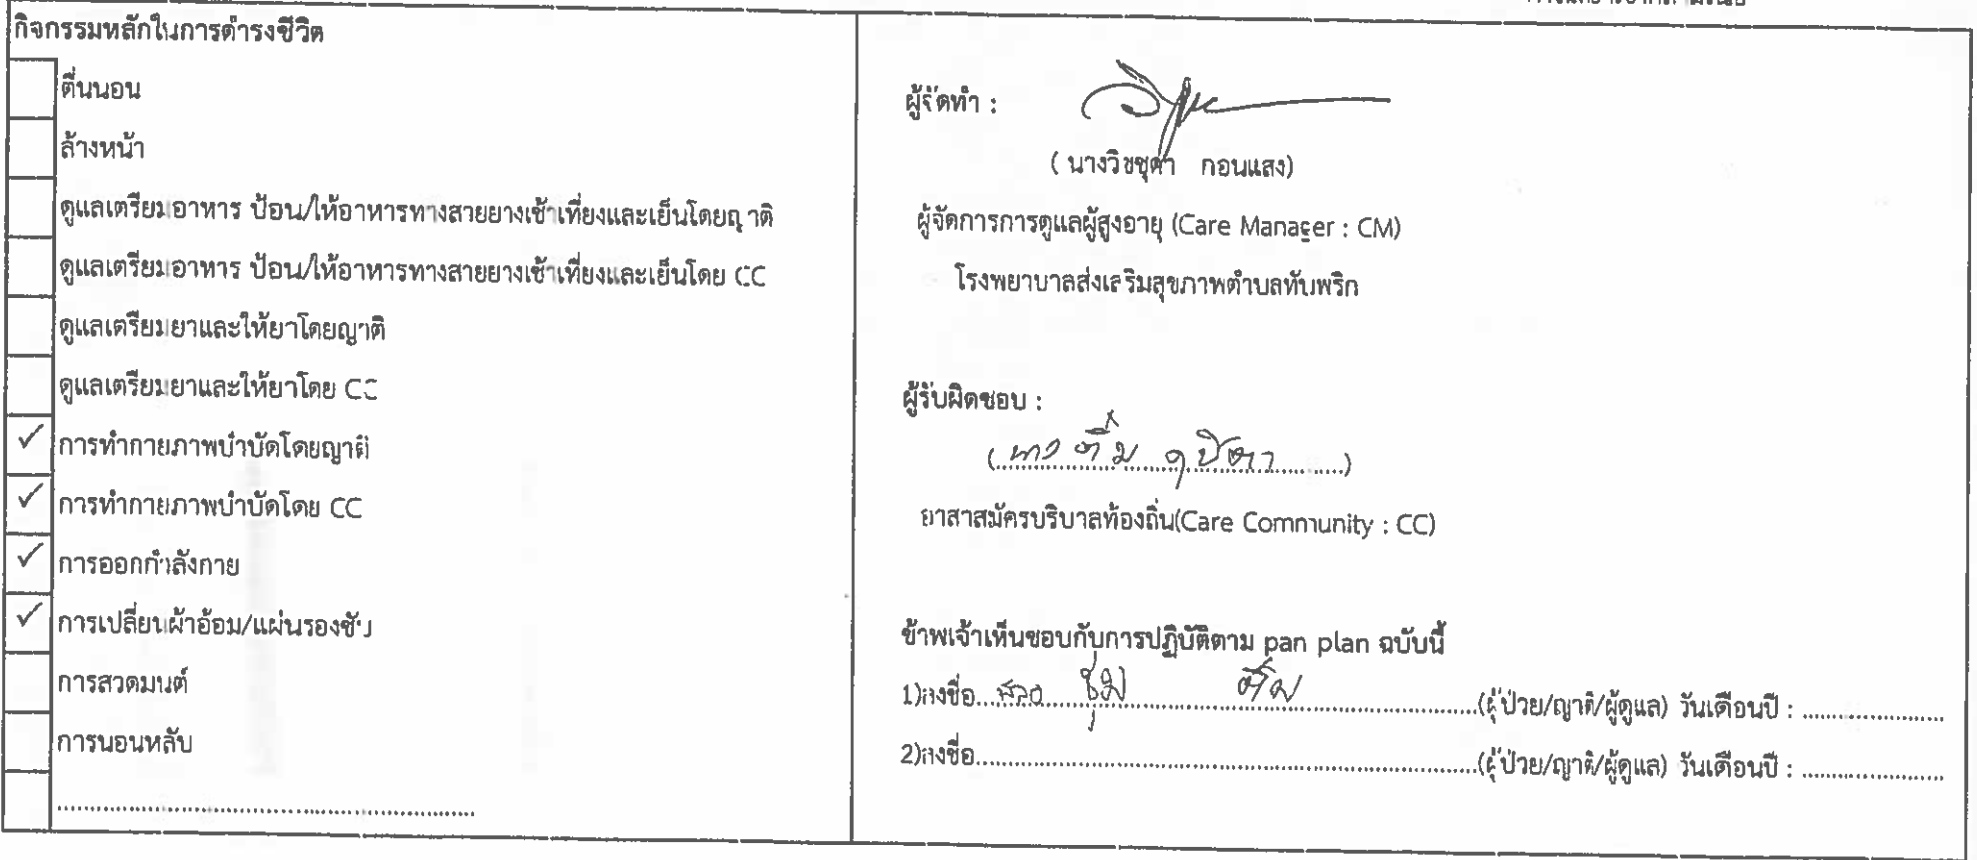 กิจกรรมหลักในการดำรงชีวิต
ตื่นนอน
ล้างหน้า
ดูแลเตรียมอาหาร ป้อน/ให้อาหารทางสายยางเช้าเที่ยงและเย็นโดยญาติ
ดูแลเตรียมอาหาร ป้อน/ให้อาหารทางสายยางเช้าเที่ยงและเย็นโดย CC
ดูแลเตรียมยาและให้ยาโดยญาติ
ดูแลเตรียมยาและให้ยาโดย CC
✓ การทำกายภาพบำบัดโดยญาติ
✓ การทำกายภาพบำบัดโดย CC
✓ การออกกำลังกาย
✓ การเปลี่ยนผ้าอ้อม/แผ่นรองซับ
การสวดมนต์
การนอนหลับ
ผู้จัดทำ :
( นางวิชชุดา กอนแสง)
ผู้จัดการการดูแลผู้สูงอายุ (Care Manager : CM)
โรงพยาบาลส่งเสริมสุขภาพตำบลทับพริก
ผู้รับผิดชอบ :
(นาง)
อาสาสมัครบริบาลท้องถิ่น(Care Community : CC)
ข้าพเจ้าเห็นชอบกับการปฏิบัติตาม pan plan ฉบับนี้
1)ลงชื่อ..........(ผู้ป่วย/ญาติ/ผู้ดูแล) วันเดือนปี : ..........
2)ลงชื่อ..........(ผู้ป่วย/ญาติ/ผู้ดูแล) วันเดือนปี : ..........